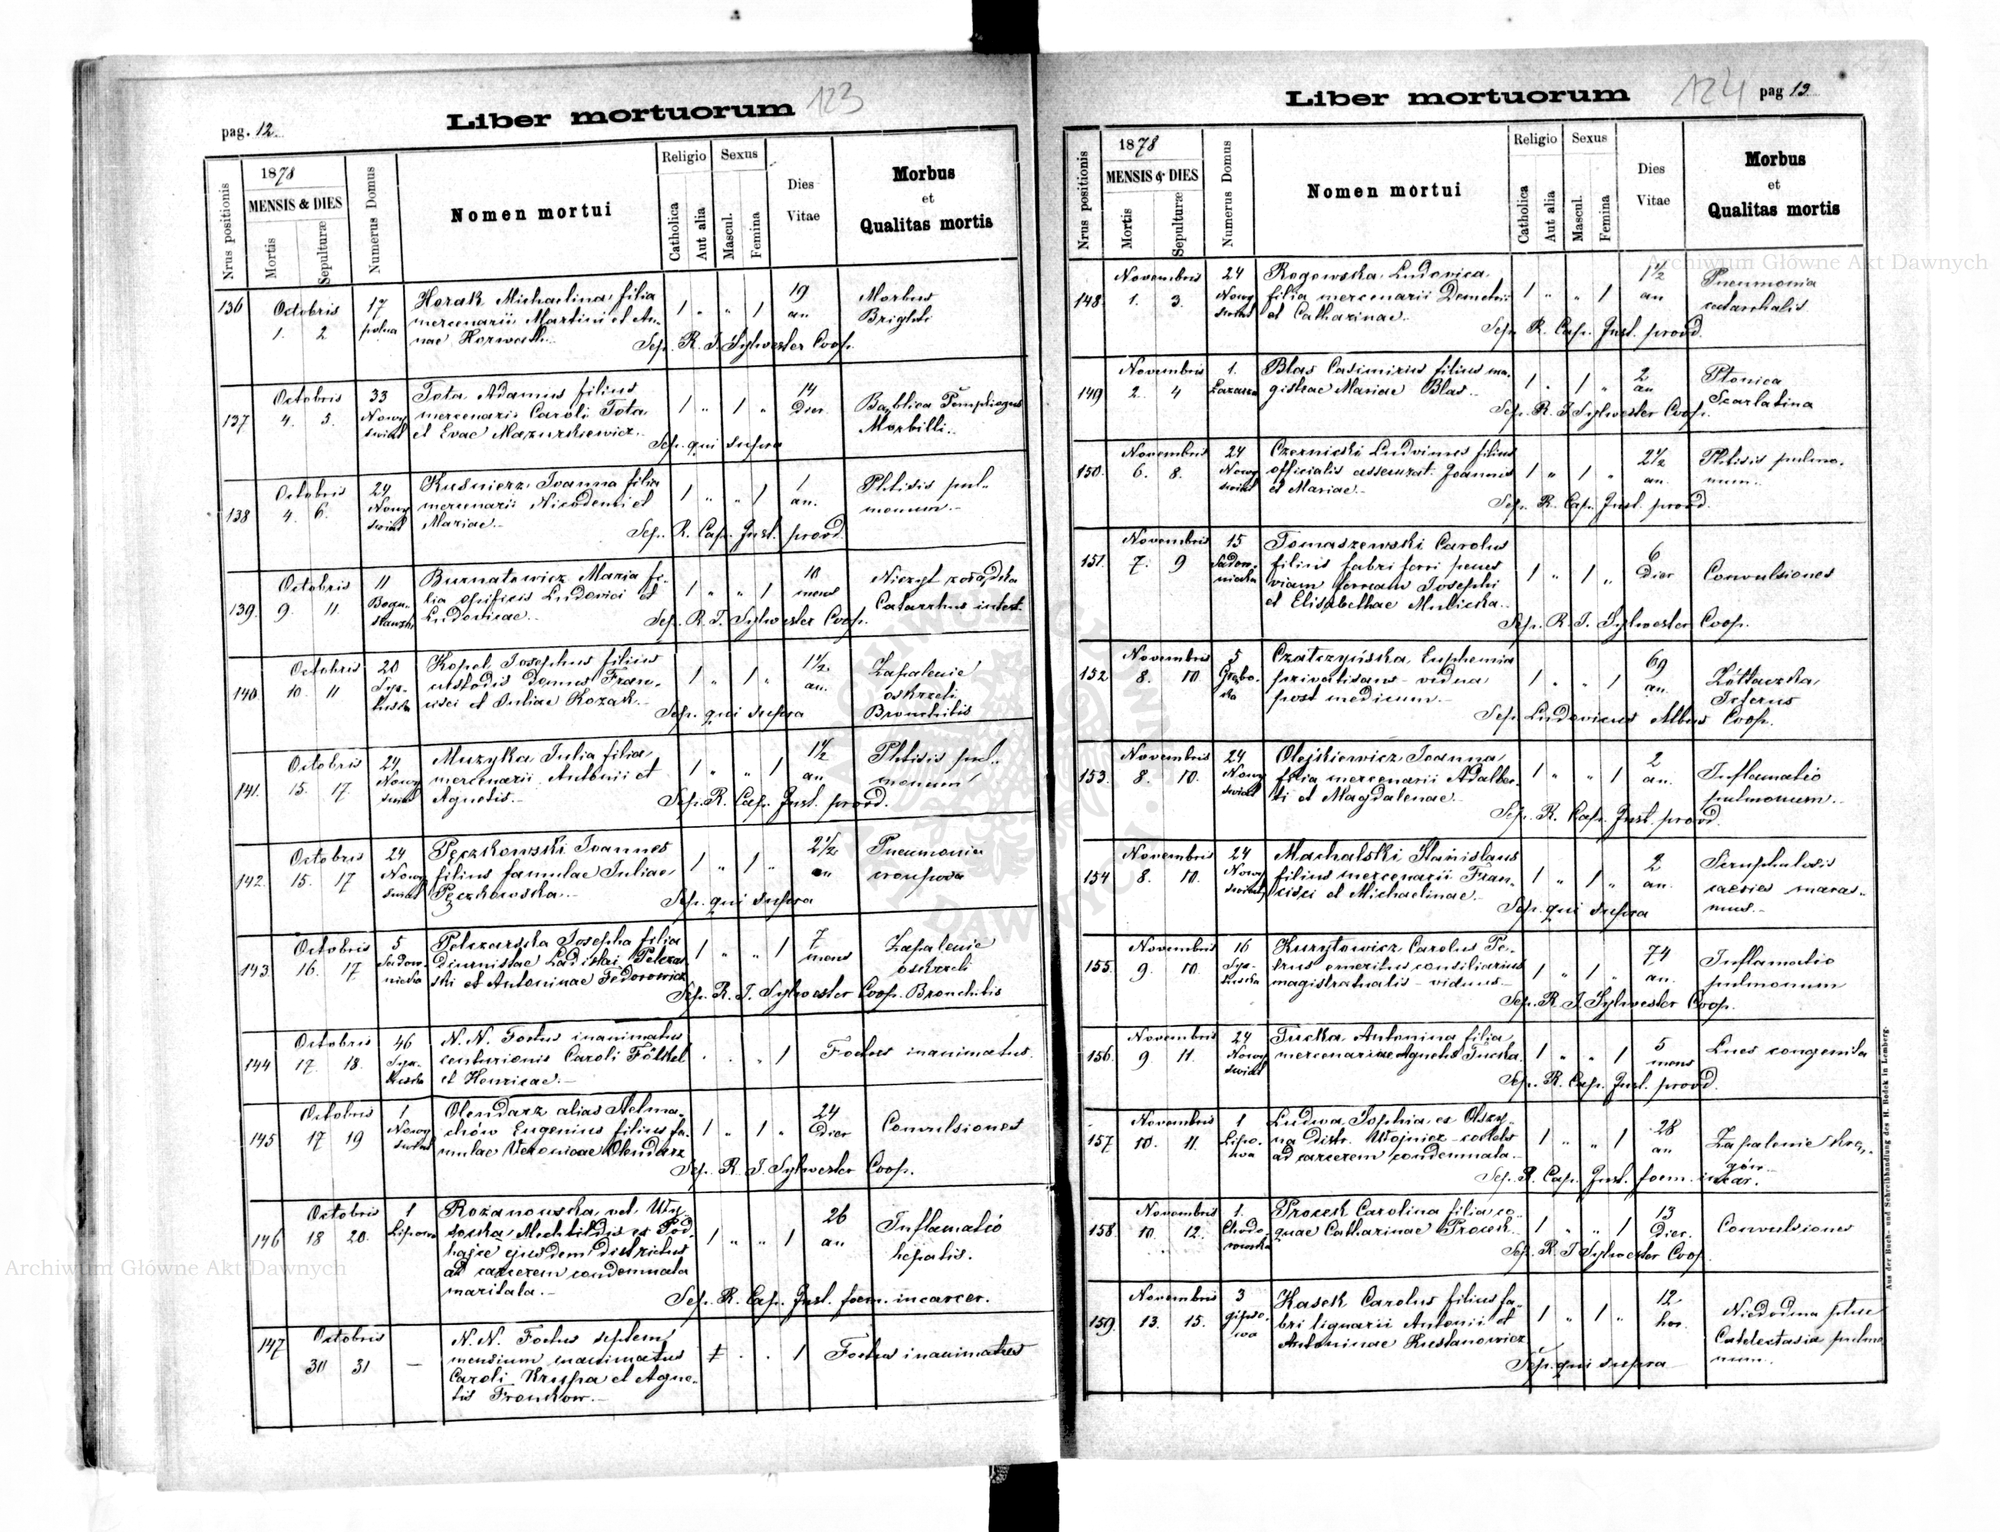 123
pag. 12.
Liber mortuorum
Nrus positionis
1878
MENSIS & DIES
Mortis
Sepulturæ
Numerus Domus
Nomen mortui
Religio
Catholica
Aut alia
Sexus
Mascul.
Femina
Dies
Vitae
Morbus
et
Qualitas mortis
136 Octobris 17 Horak Michaelina filia 19 Morbus
1. 2 mercenarii Martini et An- 1 " " 1 an Brighti
nae Horwath.
Sep. R. J. Sylwester Coop.
137 Octobris 33 Tota Adamus filius 14
4. 5. Nowy mercenarii Caroli Tota 1 " 1 " Dier.
świat et Evae Mazurkiewicz. Morbilli.
Sep. qui supra
138 Octobris 24 Kuśnierz Joanna filia 1 Phtisis pul-
4. 6. Nowy mercenarii Nicodemi et 1 " " 1 an. monum.
świat Mariae.
Sep. R. Cap. Inst. provd.
139. Octobris 11 Burnatowicz Maria fi- 10 Nieżyt żołądka
9. 11. lia opificis Ludovici et 1 " " 1 mens Catarrhus intest.
Ludovicae.
Sep. R. J. Sylwester Coop.
140 Octobris 20 Kopel Josephus filius 1 1/2. Zapalenie
10. 11 custodis domus Fran- 1 " 1 " an. oskrzeli
cisci et Juliae Kozak. Bronchitis
Sep. qui supra
141. Octobris 24 Muzyka Julia filia 1 1/2 Phtisis pul-
15. 17 Nowy mercenarii Antonii et 1 " " 1 an monum
świat Agnetis.
Sep. R. Cap. Inst. provd.
142. Octobris 24 Pęczkowski Joannes 2 1/2. Pneumonia
15. 17 Nowy filius famulae Juliae 1 " 1 " an crouposa
świat Pęczkowska.
Sep. qui supra
143. Octobris 5 Josepha filia 7 Zapalenie
16. 17 Sadow- diurnistae Ladislai 1 " " 1 mens oskrzeli
nicka ski et Antoninae Fedorowicz
Sep. R. J. Sylwester Coop. Bronchitis
144 Octobris 46 N. N. Foetus inanimatus
17. 18. centurionis Caroli Fölkel . . " 1 Foetus inanimatus.
et Henricae.
145 Octobris 1 Olendarz alias 24
17 19 Nowy chów Eugenius filius fa- 1 " 1 " Dier Convulsiones
świat mulae Veronicae Olendarz
Sep. R. J. Sylwester Coop.
146 Octobris 1 Rożanowska vel Wy- 26 Inflamatio
18 20. Lipowa socka Mechtildis ex Pod- 1 " " 1 an hepatis.
hajce ejusdem districtus
ad carcerem condemnata
maritata.
Sep. R. Cap. Inst. foem. incarcer.
147 Octobris N. N. Foetus septem
30 31 — mensium inanimatus . . 1 Foetus inanimatus
Caroli Krupa et Agne-
tis Fronckow.
Liber mortuorum
124
pag 13.
Nrus positionis
1878
MENSIS & DIES
Mortis
Sepulturæ
Numerus Domus
Nomen mortui
Religio
Catholica
Aut alia
Sexus
Mascul.
Femina
Dies
Vitae
Morbus
et
Qualitas mortis
148 Novembris 24 Rogowska Ludovica 1 1/2 Pneumonia
1. 3. Nowy filia mercenarii Demetrii 1 " " 1 an catarrhalis
świat et Catharinae.
Sep. R. Cap. Inst. provd.
149 Novembris 1. Blas Casimirus filius ma- 2
2. 4 Łazarza gistrae Mariae Blas. 1 " 1 " an Scarlatina
Sep. R. J. Sylwester Coop.
150. Novembris 24 Czernicki Ludovicus filius 2 1/2 Phtisis pulmo-
6. 8. Nowy officialis assecurat. Joannis 1 " 1 " an. num.
świat et Mariae.
Sep. R. Cap. Inst. provd.
151. Novembris 15 Tomaszewski Carolus 6
7. 9 Sadow- filius fabri ferri penes 1 " 1 " Dier Convulsiones
nicka viam ferream Josephi
et Elisabethae Mulicka.
Sep. R. J. Sylwester Coop.
152 Novembris 5 Czatczyńska Euphemia 69 Żółtaczka
8. 10. privatisans - vidua 1 " " 1 an. Icterus
post medicum.
Sep. Ludovicus Albus Coop.
153. Novembris 24 Olejkiewicz Joanna 2 Inflamatio
8. 10. Nowy filia mercenarii Adalber- 1 " " 1 an. pulmonum.
świat ti et Magdalenae.
Sep. R. Cap. Inst. provd.
154 Novembris 24 Machalski Stanislaus 2 Scruphulosis
8. 10. Nowy filius mercenarii Fran- 1 " 1 " an. caries maras-
świat cisci et Michaelinae. mus.
Sep. qui supra
155. Novembris 16 Kurytowicz Carolus Pe- 74 Inflamatio
9. 10. trus emeritus consiliarius 1 " 1 " an. pulmonum
magistratualis - viduus.
Sep. R. J. Sylwester Coop.
156. Novembris 24 Tucka Antonina filia 5
9. 11. Nowy mercenariae Agnetis Tucka. 1 " " 1 mens Lues congenita
świat
Sep. R. Cap. Inst. provd.
157 Novembris 1 Ludwa Sophia ex Olszy- 28 Zapalenie
10. 11. Lipo- na distr. Wojnicz - 1 " " 1 an
wa ad carcerem condemnata.
Sep. R. Cap. Inst. foem. incar.
158. Novembris 1. Procek Carolina filia co- 13
10. 12. Chodo- quae Catharinae Procek. 1 " " 1 Dier. Convulsiones
Sep. R. J. Sylwester Coop.
159. Novembris 3 Kasek Carolus filius fa- 12
13. 15. bri lignarii Antonii et 1 " 1 " hor.
Antoninae Rustanowicz
Sep. qui supra
Aus der Buch- und Schreibhandlung des H. Bodek in Lemberg.
Archiwum Główne Akt Dawnych
Archiwum Główne Akt Dawnych
ARCHIWUM GŁÓWNE AKT DAWNYCH